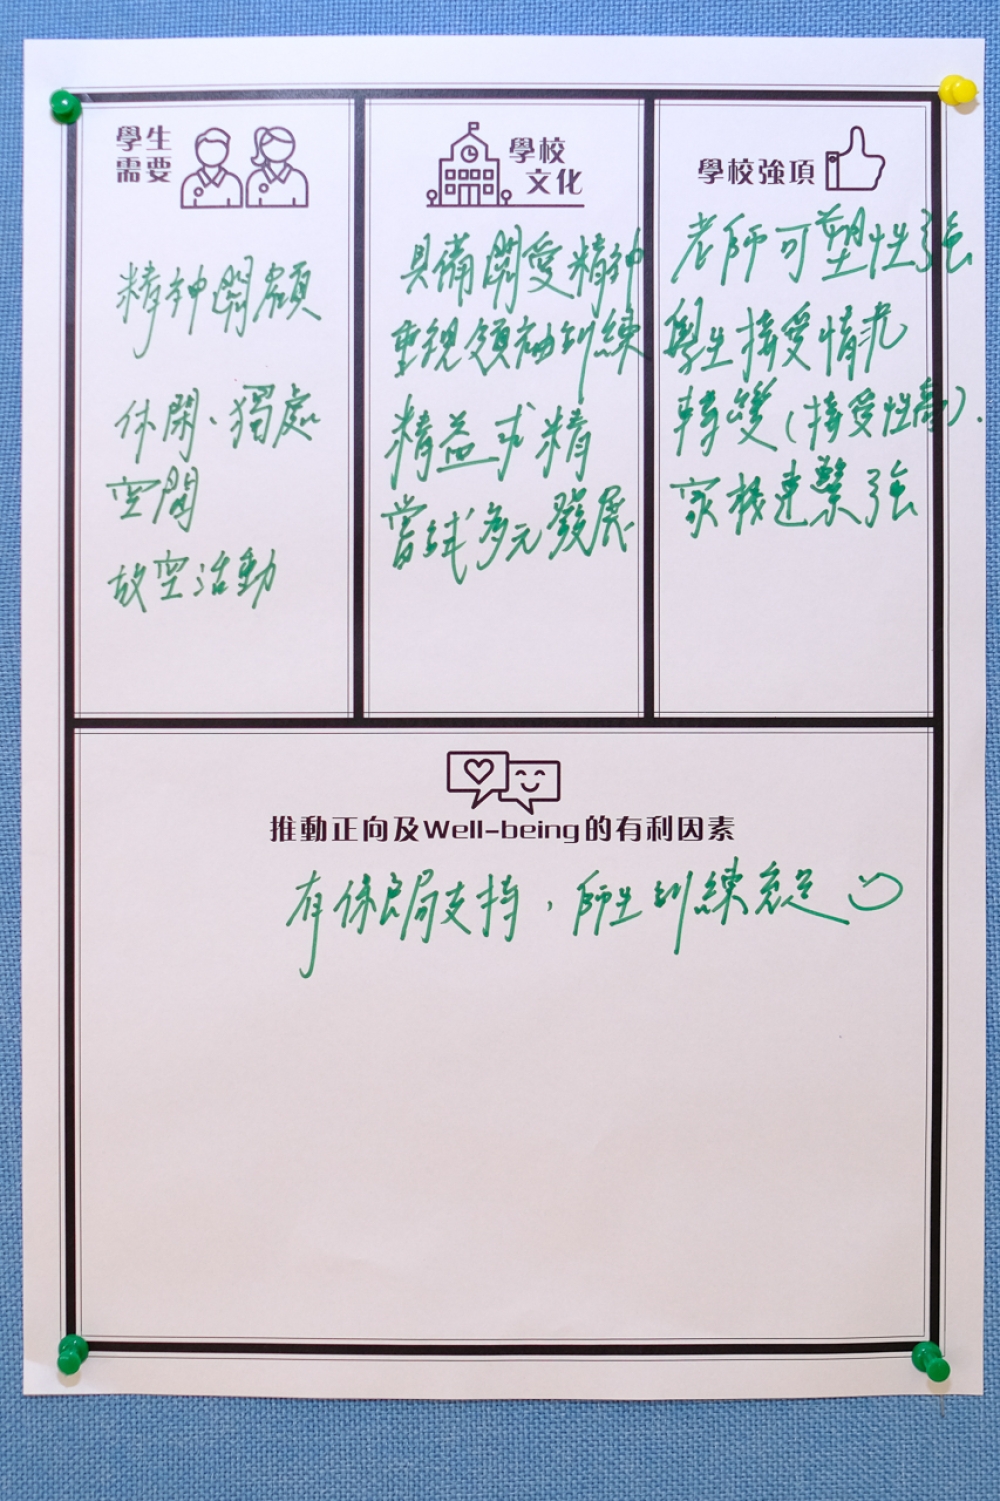 學生
需要
精神關顧
休閑、獨處
空間
放空活動
學校
文化
具備關愛精神
重視領袖訓練
精益求精
嘗試多元發展
學校強項
老師可塑性強
學生接受情況
轉變(接受性高).
家校連繫強
推動正向及Well-being的有利因素
有保良局支持，師生訓練充足